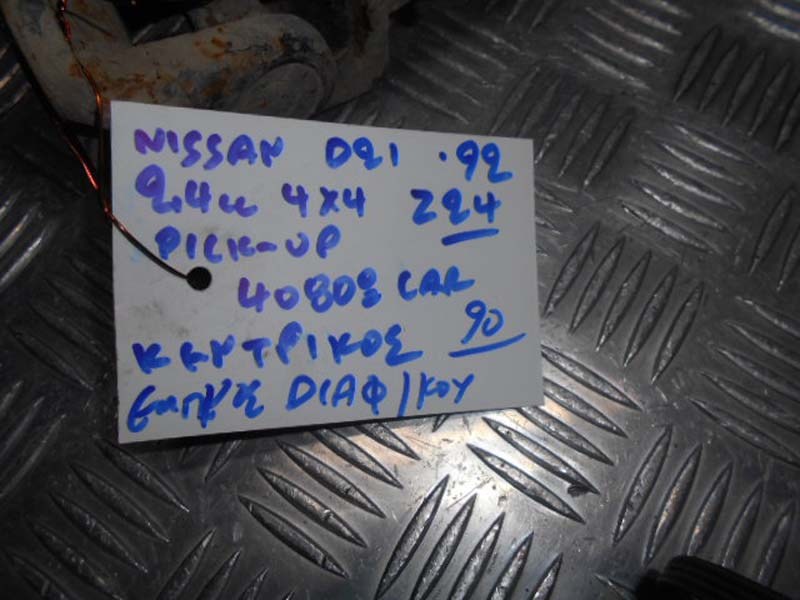 NISSAN D21 .92
2,4cc 4X4 Z24
PICK-UP
40802 CAR
ΚΕΝΤΡΙΚΟΣ 90
ΔΙΑΦ/ΚΟΥ